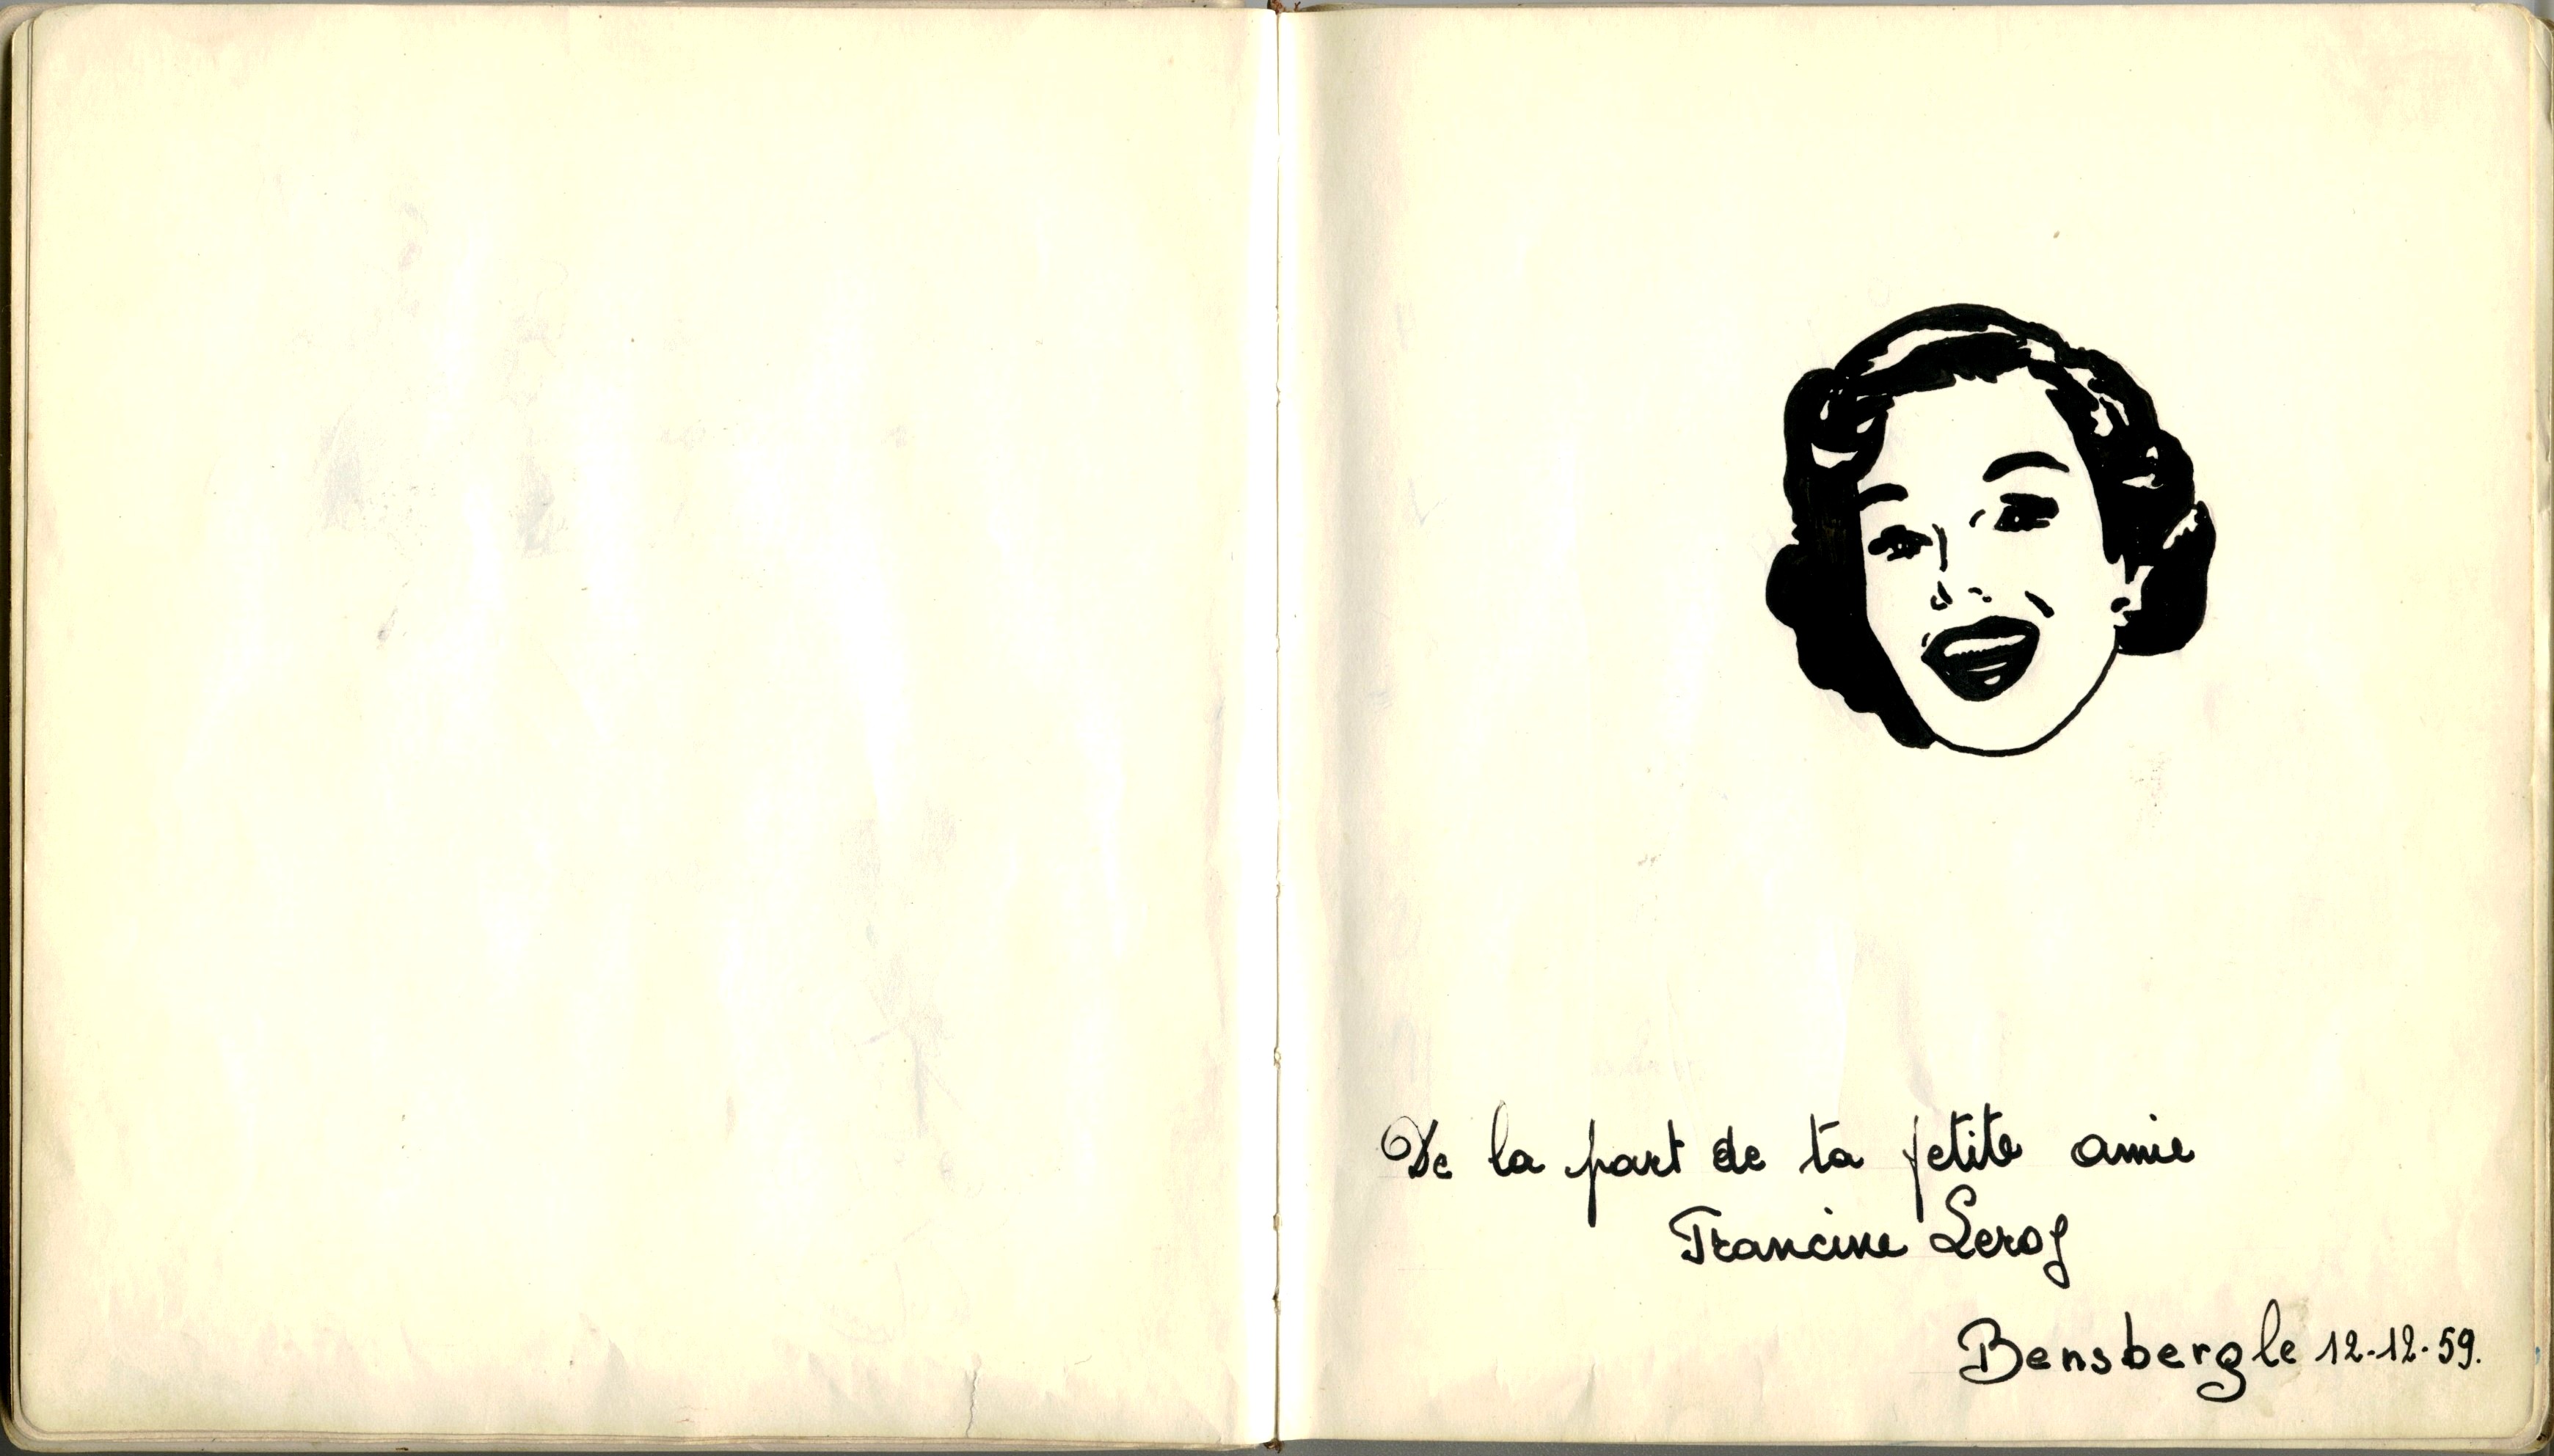 De la part de ta petite amie
Francine Leroy
Bensberg le 12-12-59.